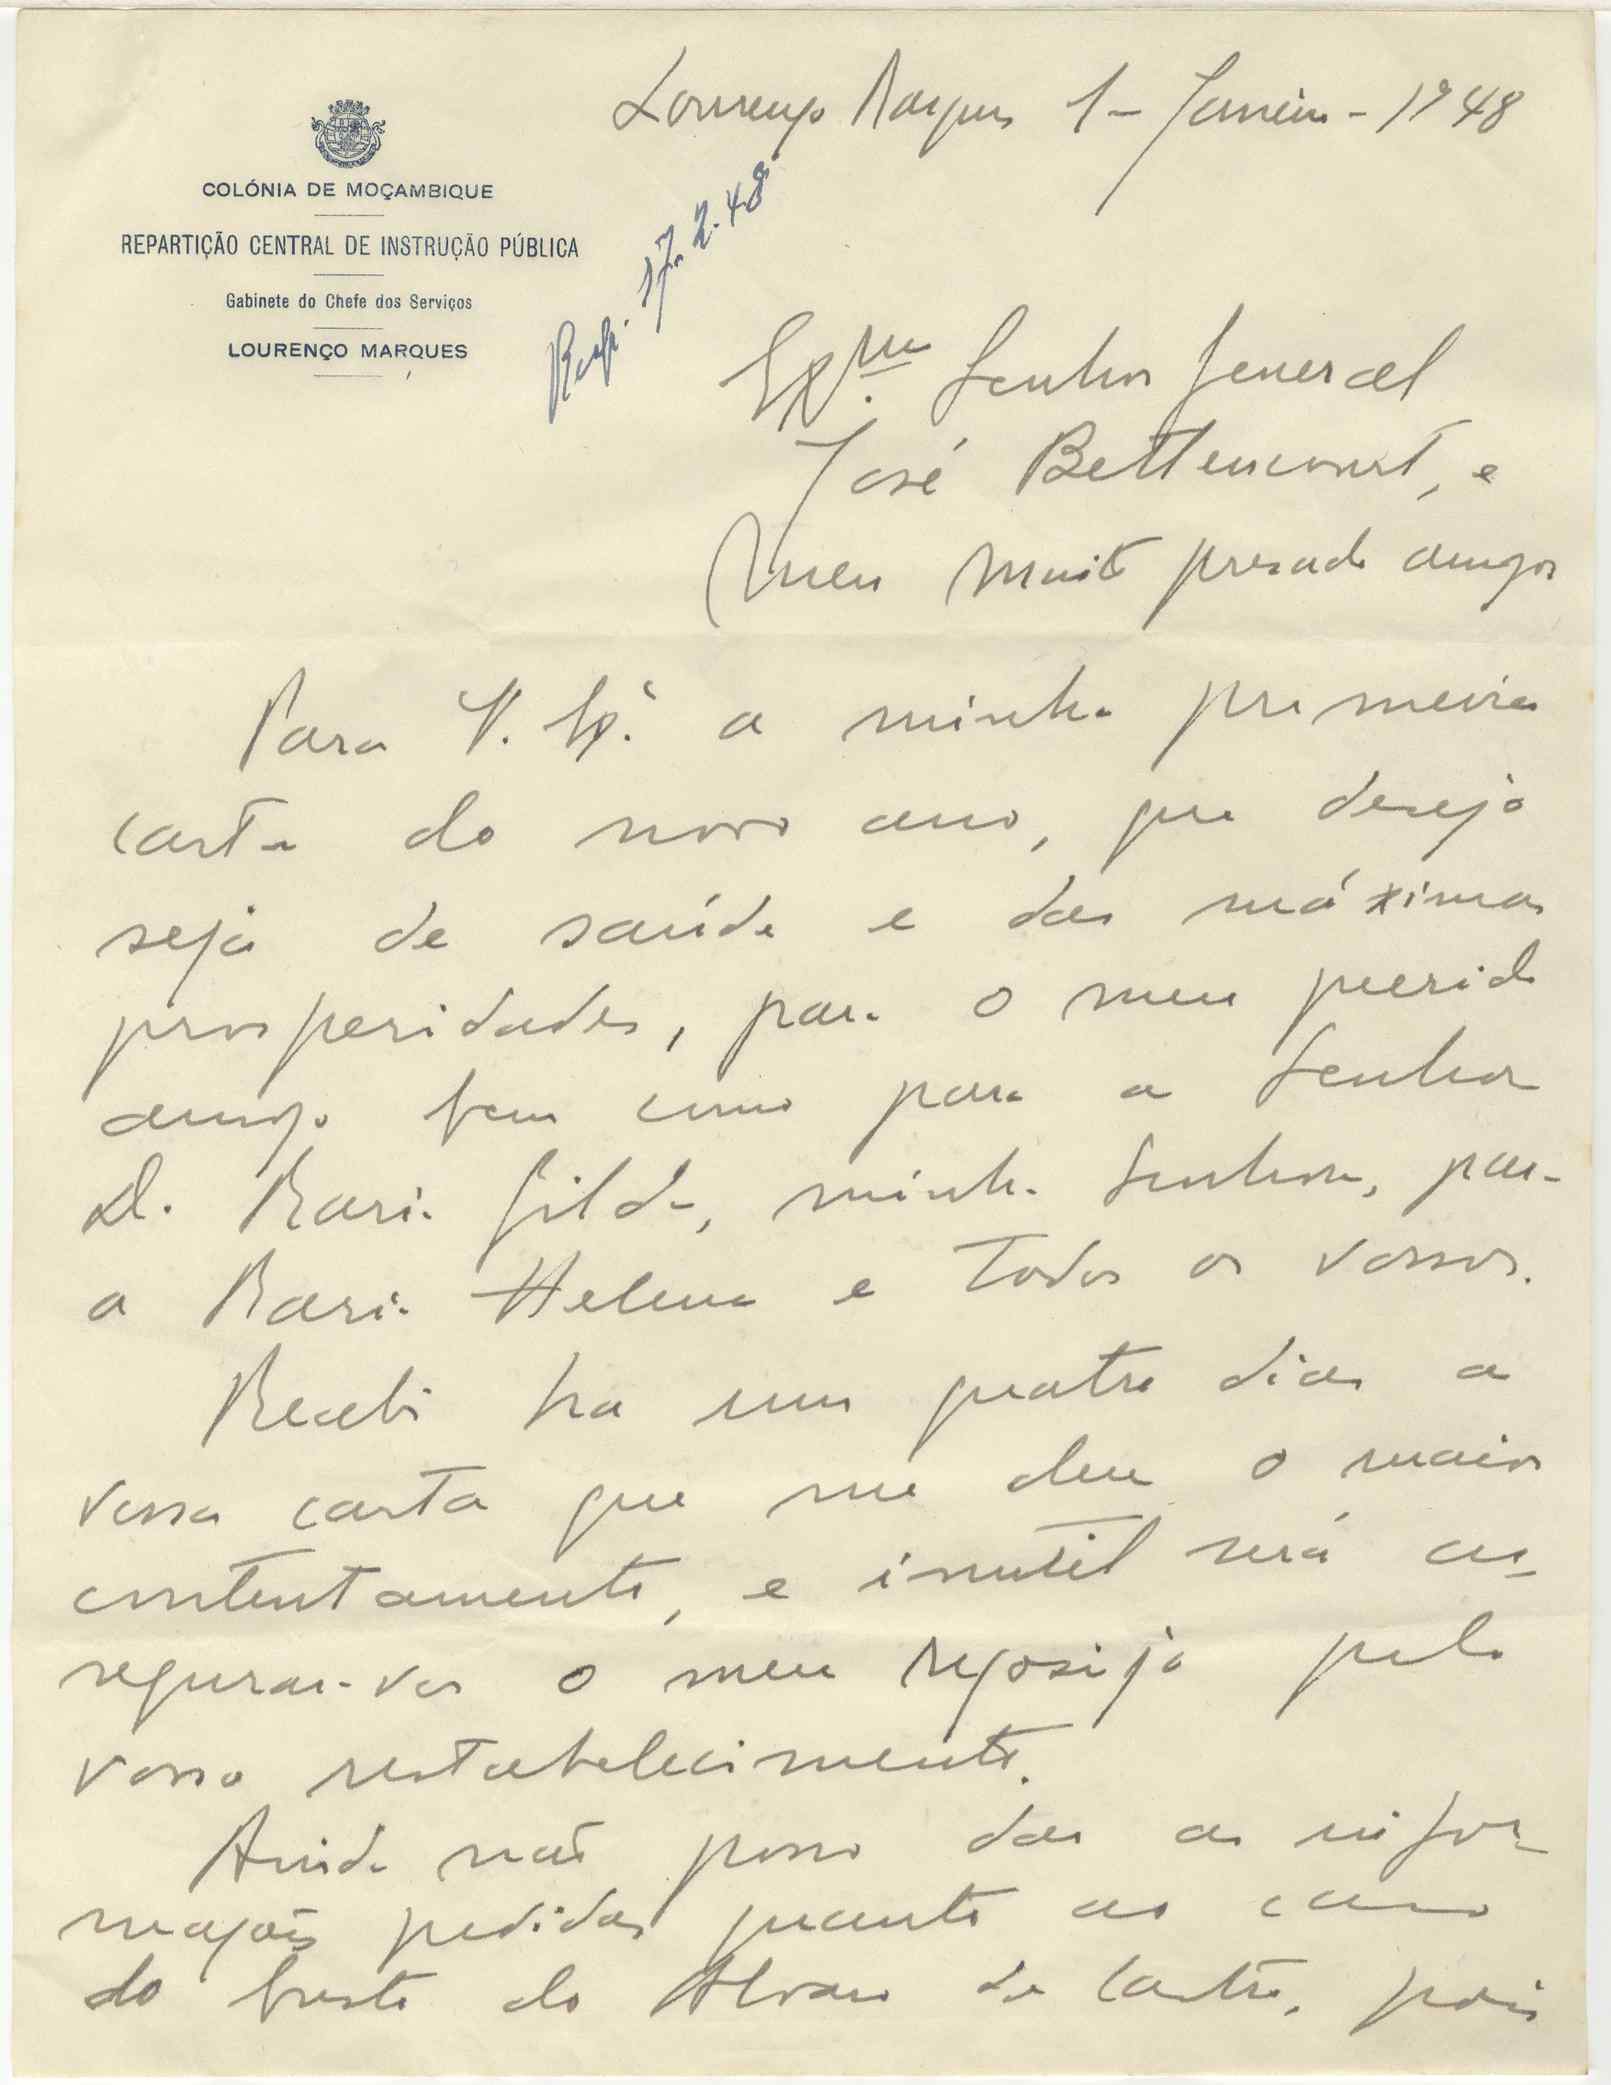 COLÓNIA DE MOÇAMBIQUE
REPARTIÇÃO CENTRAL DE INSTRUÇÃO PÚBLICA
Gabinete do Chefe dos Serviços
LOURENÇO MARQUES
Lourenço Marques 1-Janeiro-1948
Resp. 17.2.48
Exmo. Senhor General
José Bettencourt, e
Meu muito presado amigo
Para V. Exª. a minha primeira
carta do novo ano, que desejo
seja de saúde e das máximas
prosperidades, para o meu querido
amigo bem como para a Senhora
D. Maria Gilda, minha Senhora, para
a Maria Helena e todos os vossos.
Recebi ha uns quatro dias a
vossa carta que me deu o maior
contentamento, e inutil será as-
segurar-vos o meu regosijo pelo
vosso restabelecimento.
Ainda não posso dar as infor-
mações pedidas quanto ao caso
do busto do Alvaro de Castro, pois